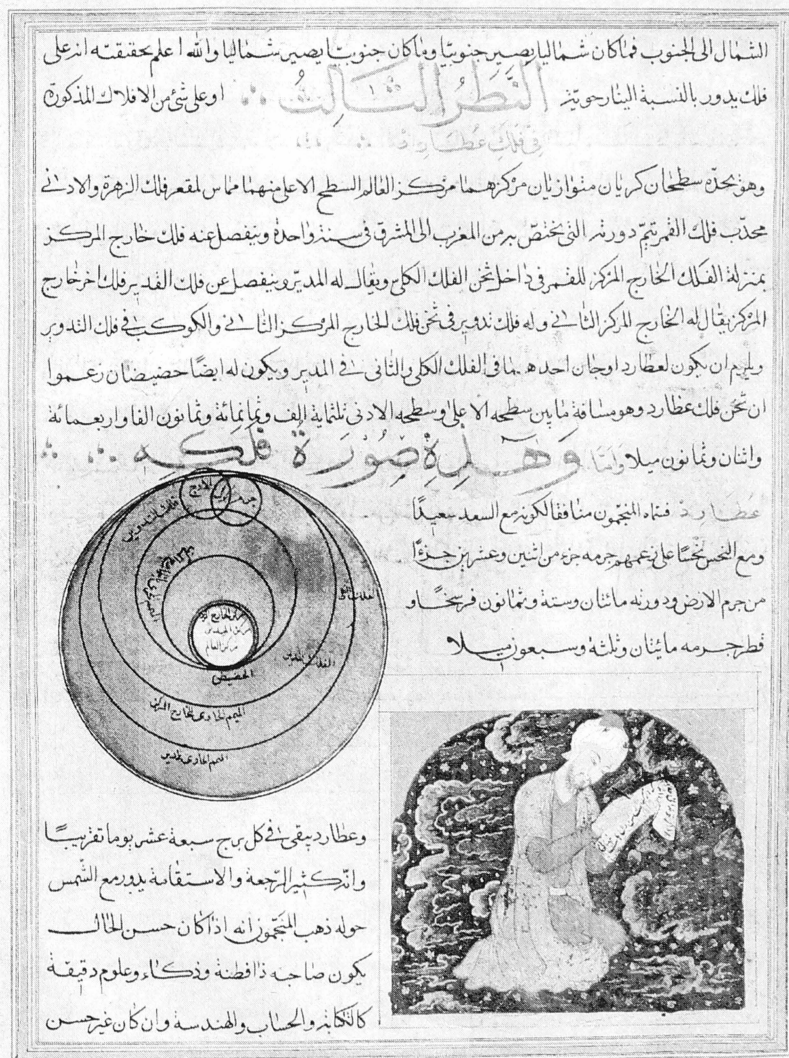 الشمال الى الجنوب فماكان شماليا يصير جنوبيا وماكان جنوبيا يصير شماليا والله اعلم بحقيقته انه على
فلك يدور بالنسبة الينا رحوية النظر الثالث او على شئ من الافلاك المذكورة
في فلك عطارد
وهو يحده سطحان كريان متوازيان مركزهما مركز العالم السطح الاعلى منهما مماس لمقعر فلك الزهرة والادنى
محدب فلك القمر تتم دورته التى تختص به من المغرب الى المشرق فى سنة واحدة وينفصل عنه فلك خارج المركز
بمنزلة الفلك الخارج المركز للقمر فى داخل ثخن الفلك الكلى ويقال له المدير وينفصل عن فلك المدير فلك اخر خارج
المركز يقال له الخارج المركز الثانى وله فلك تدوير فى ثخن فلك الخارج المركز الثانى والكوكب فى فلك التدوير
ويلزم ان يكون لعطارد اوجان احدهما فى الفلك الكلى والثانى فى المدير ويكون له ايضا حضيضان زعموا
ان ثخن فلك عطارد وهو مسافة ما بين سطحه الاعلى وسطحه الادنى ثلثماية الف وثمانمائة وثمانون الفا واربعمائة
واثنان وثمانون ميلا وهذه صورة فلكه واما
عطارد فسماه المنجمون منافقا لكونه مع السعد سعيدا
ومع النحس نحسا على زعمهم جرمه جزء من اثنين وعشرين جزءا
من جرم الارض ودورته مائتان وستة وثمانون فرسخا و
قطر جرمه مائيتان وثلثة وسبعون ميلا
الاوج
فلك التدوير
الفلك المدير
مركز العالم
الحضيض
المتمم الحاوى للخارج المركز
المتمم الحاوى للمدير
وعطارد يبقى فى كل برج سبعة عشر يوما تقريبا
وانه كثير الرجعة والاستقامة يدور مع الشمس
حوله ذهب المنجمون انه اذا كان حسن الحال
يكون صاحبه ذا فطنة وذكاء وعلوم دقيقة
كالكتابة والحساب والهندسة وان كان غير حسن